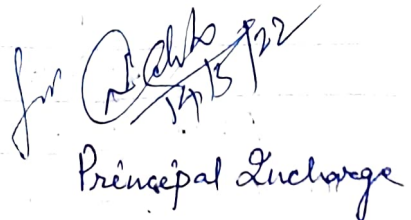 for
14/5/22
Principal Incharge